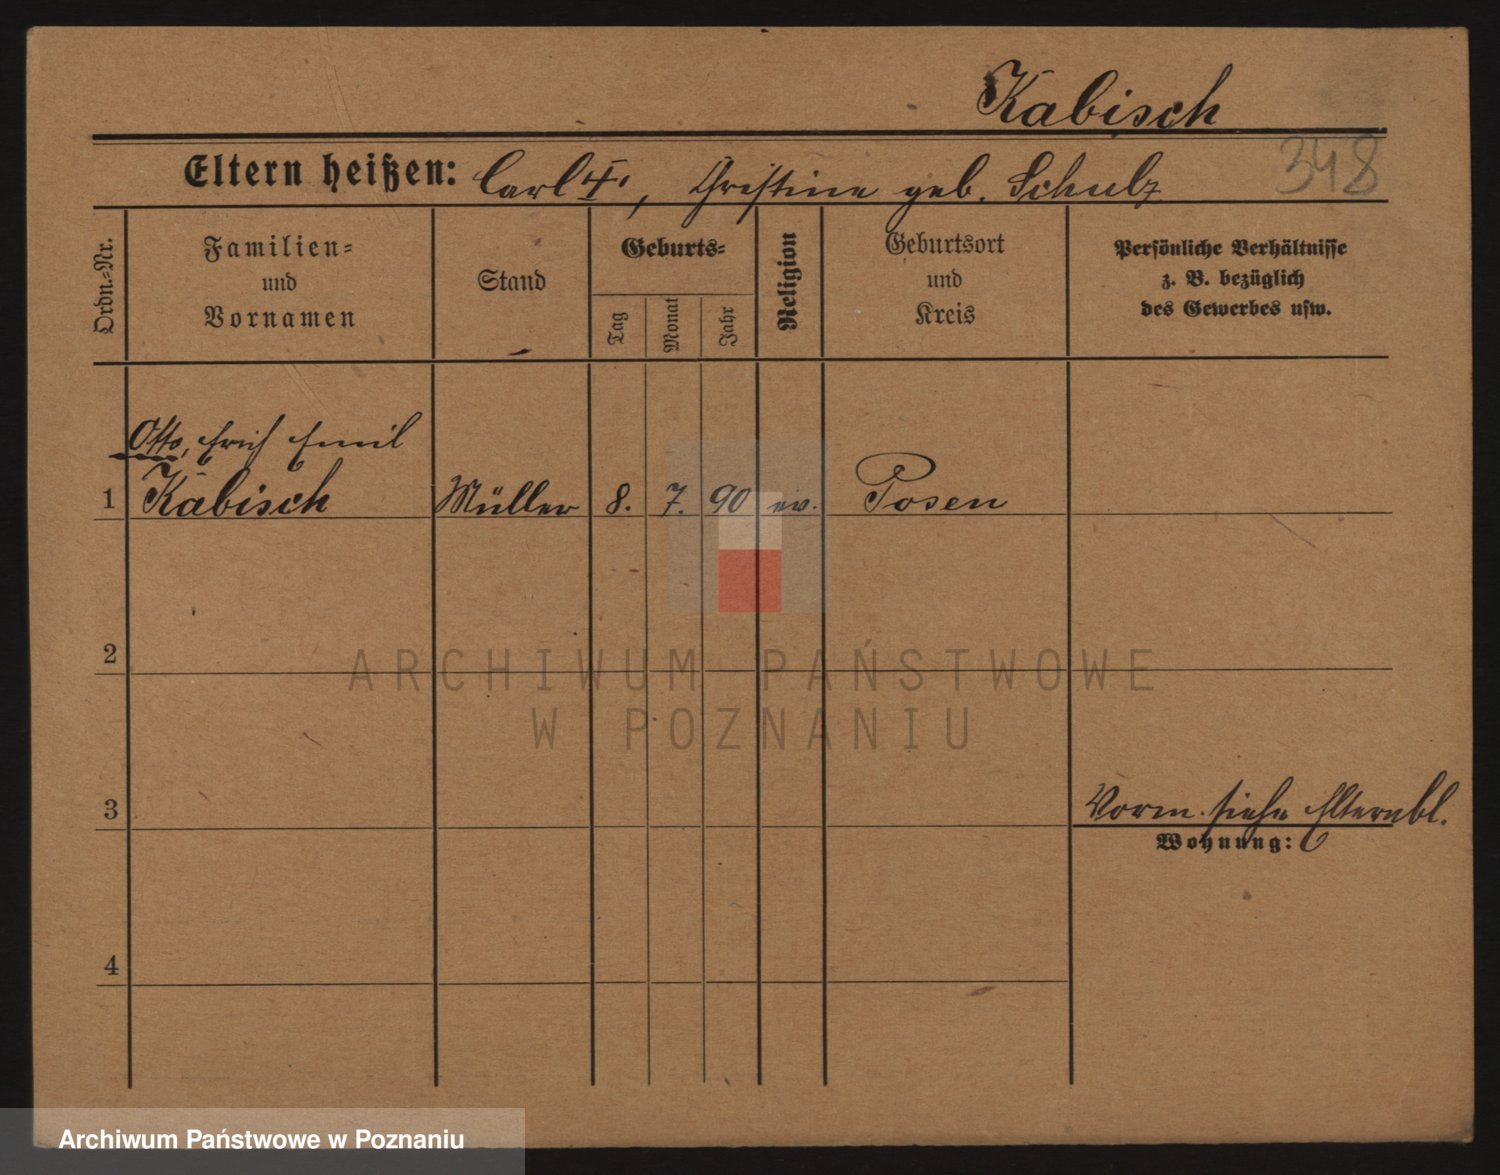 Kabisch
348
Eltern heißen: Carl, Christine geb. Schulz
Ordn.-Nr.
Familien-
und
Vornamen
Stand
Geburts-
Tag
Monat
Jahr
Religion
Geburtsort
und
Kreis
Persönliche Verhältnisse
z. B. bezüglich
des Gewerbes usw.
Otto, Erich Emil
1 Kabisch Müller 8. 7. 90 ev. Posen
2
ARCHIWUM PAŃSTWOWE
W POZNANIU
3
Vorm. siehe Elternbl.
Wohnung:
4
Archiwum Państwowe w Poznaniu